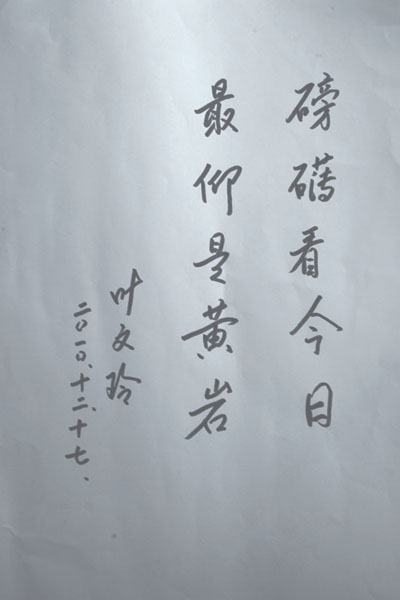 磅礴看今日
最仰是黄岩
叶文玲
二〇一〇、十二、十七、